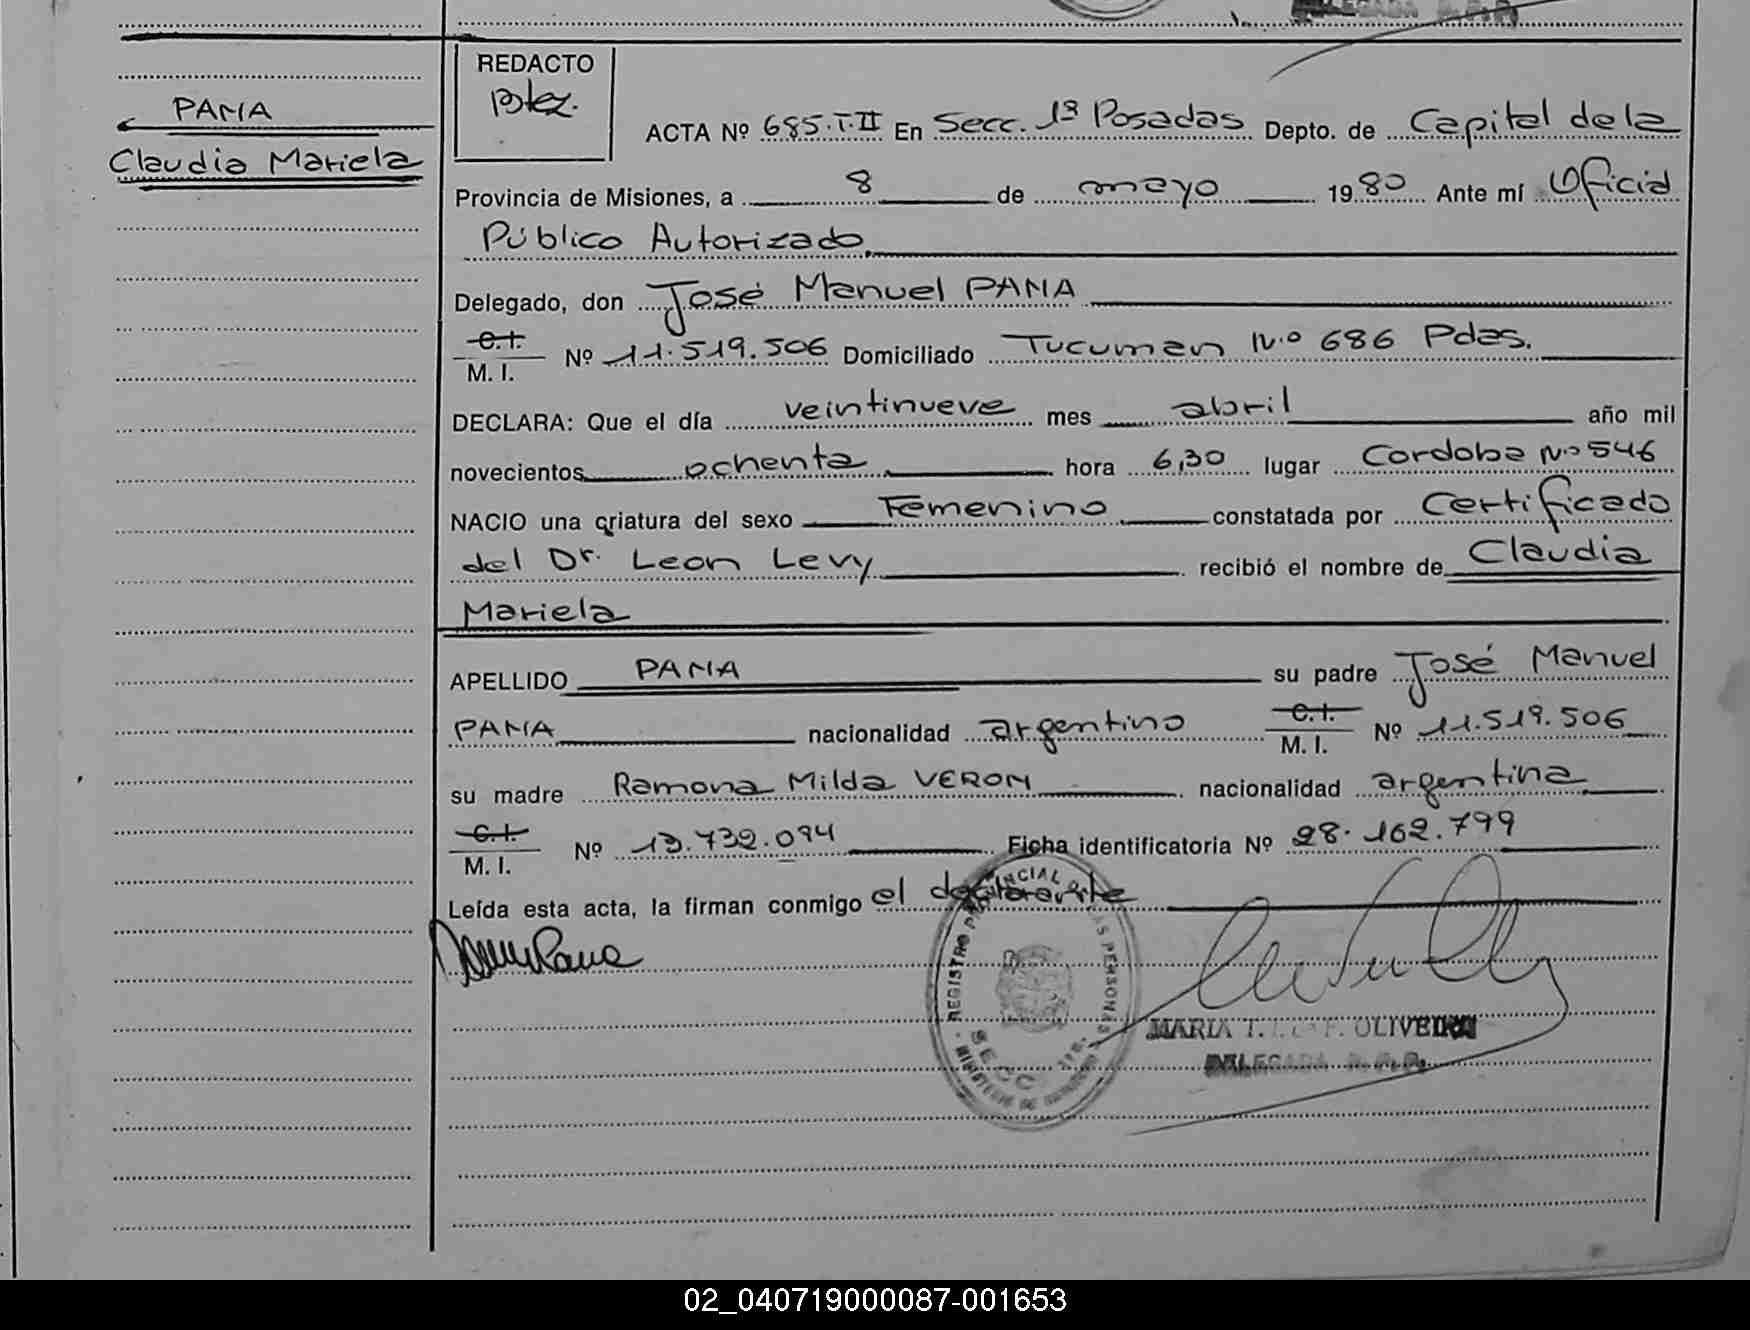 PANA
Claudia Mariela
REDACTO
ACTA Nº 685.T.II En Secc. 1ª Posadas Depto. de Capital de la
Provincia de Misiones, a 8 de mayo 1980 Ante mí Oficial
Público Autorizado.
Delegado, don José Manuel PANA
C.I.
M. I. Nº 11.519.506 Domiciliado Tucuman N.º 686 Pdas.
DECLARA: Que el día veintinueve mes abril año mil
novecientos ochenta hora 6,30 lugar Cordoba Nº 546
NACIO una criatura del sexo Femenino constatada por Certificado
del Dr. Leon Levy recibió el nombre de Claudia
Mariela
APELLIDO PANA su padre José Manuel
PANA nacionalidad argentino C.I.
M. I. Nº 11.519.506
su madre Ramona Milda VERON nacionalidad argentina
C.I.
M. I. Nº 13.732.094 Ficha identificatoria Nº 28.162.799
Leída esta acta, la firman conmigo el declarante
REGISTRO PROVINCIAL DE LAS PERSONAS
SECC. 1ra.
MINISTERIO DE GOBIERNO
MARIA T. F. OLIVEIRA
DELEGADA
02_040719000087-001653